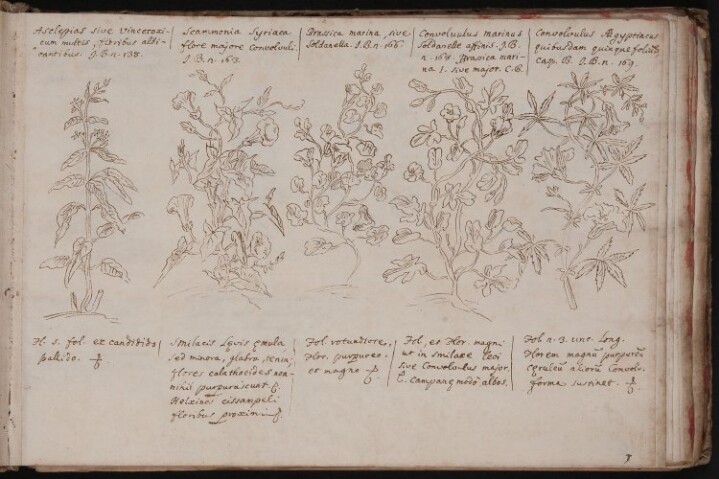 Asclepias sive Vincetoxi-
cum multis, floribus albi-
cantibus. J.B.n.138.
Scammonia Syriaca
flore majore Convolvuli.
J.B.n.163.
Brassica marina, sive
Soldanella. J.B.n.166.
Convolvulus marinus
Soldanellæ affinis. J.B.
n.168. Brassica mari-
na 1. sive major. C.B.
Convolvulus Ægyptiacus
quibusdam quinquefolius
Casp. B. J.B.n.169.
H. s. fol. ex candidido
pallido.
Smilacis Lævis æmula
sed minora, glabra, tenia;
flores calathoides non-
nihil purpurascunt C.
Helxines cissampeli
floribus proximi
Fol rotundiore,
flor. purpureo.
et magno
Fol, et flor. magni
ut in smilace levi
sive Convolvulus major.
C. campanæ modo albos.
Fol n. 3. unc. long.
florem magnū purpureū
cæruleū aliorū Convolv.
forma sustinet.